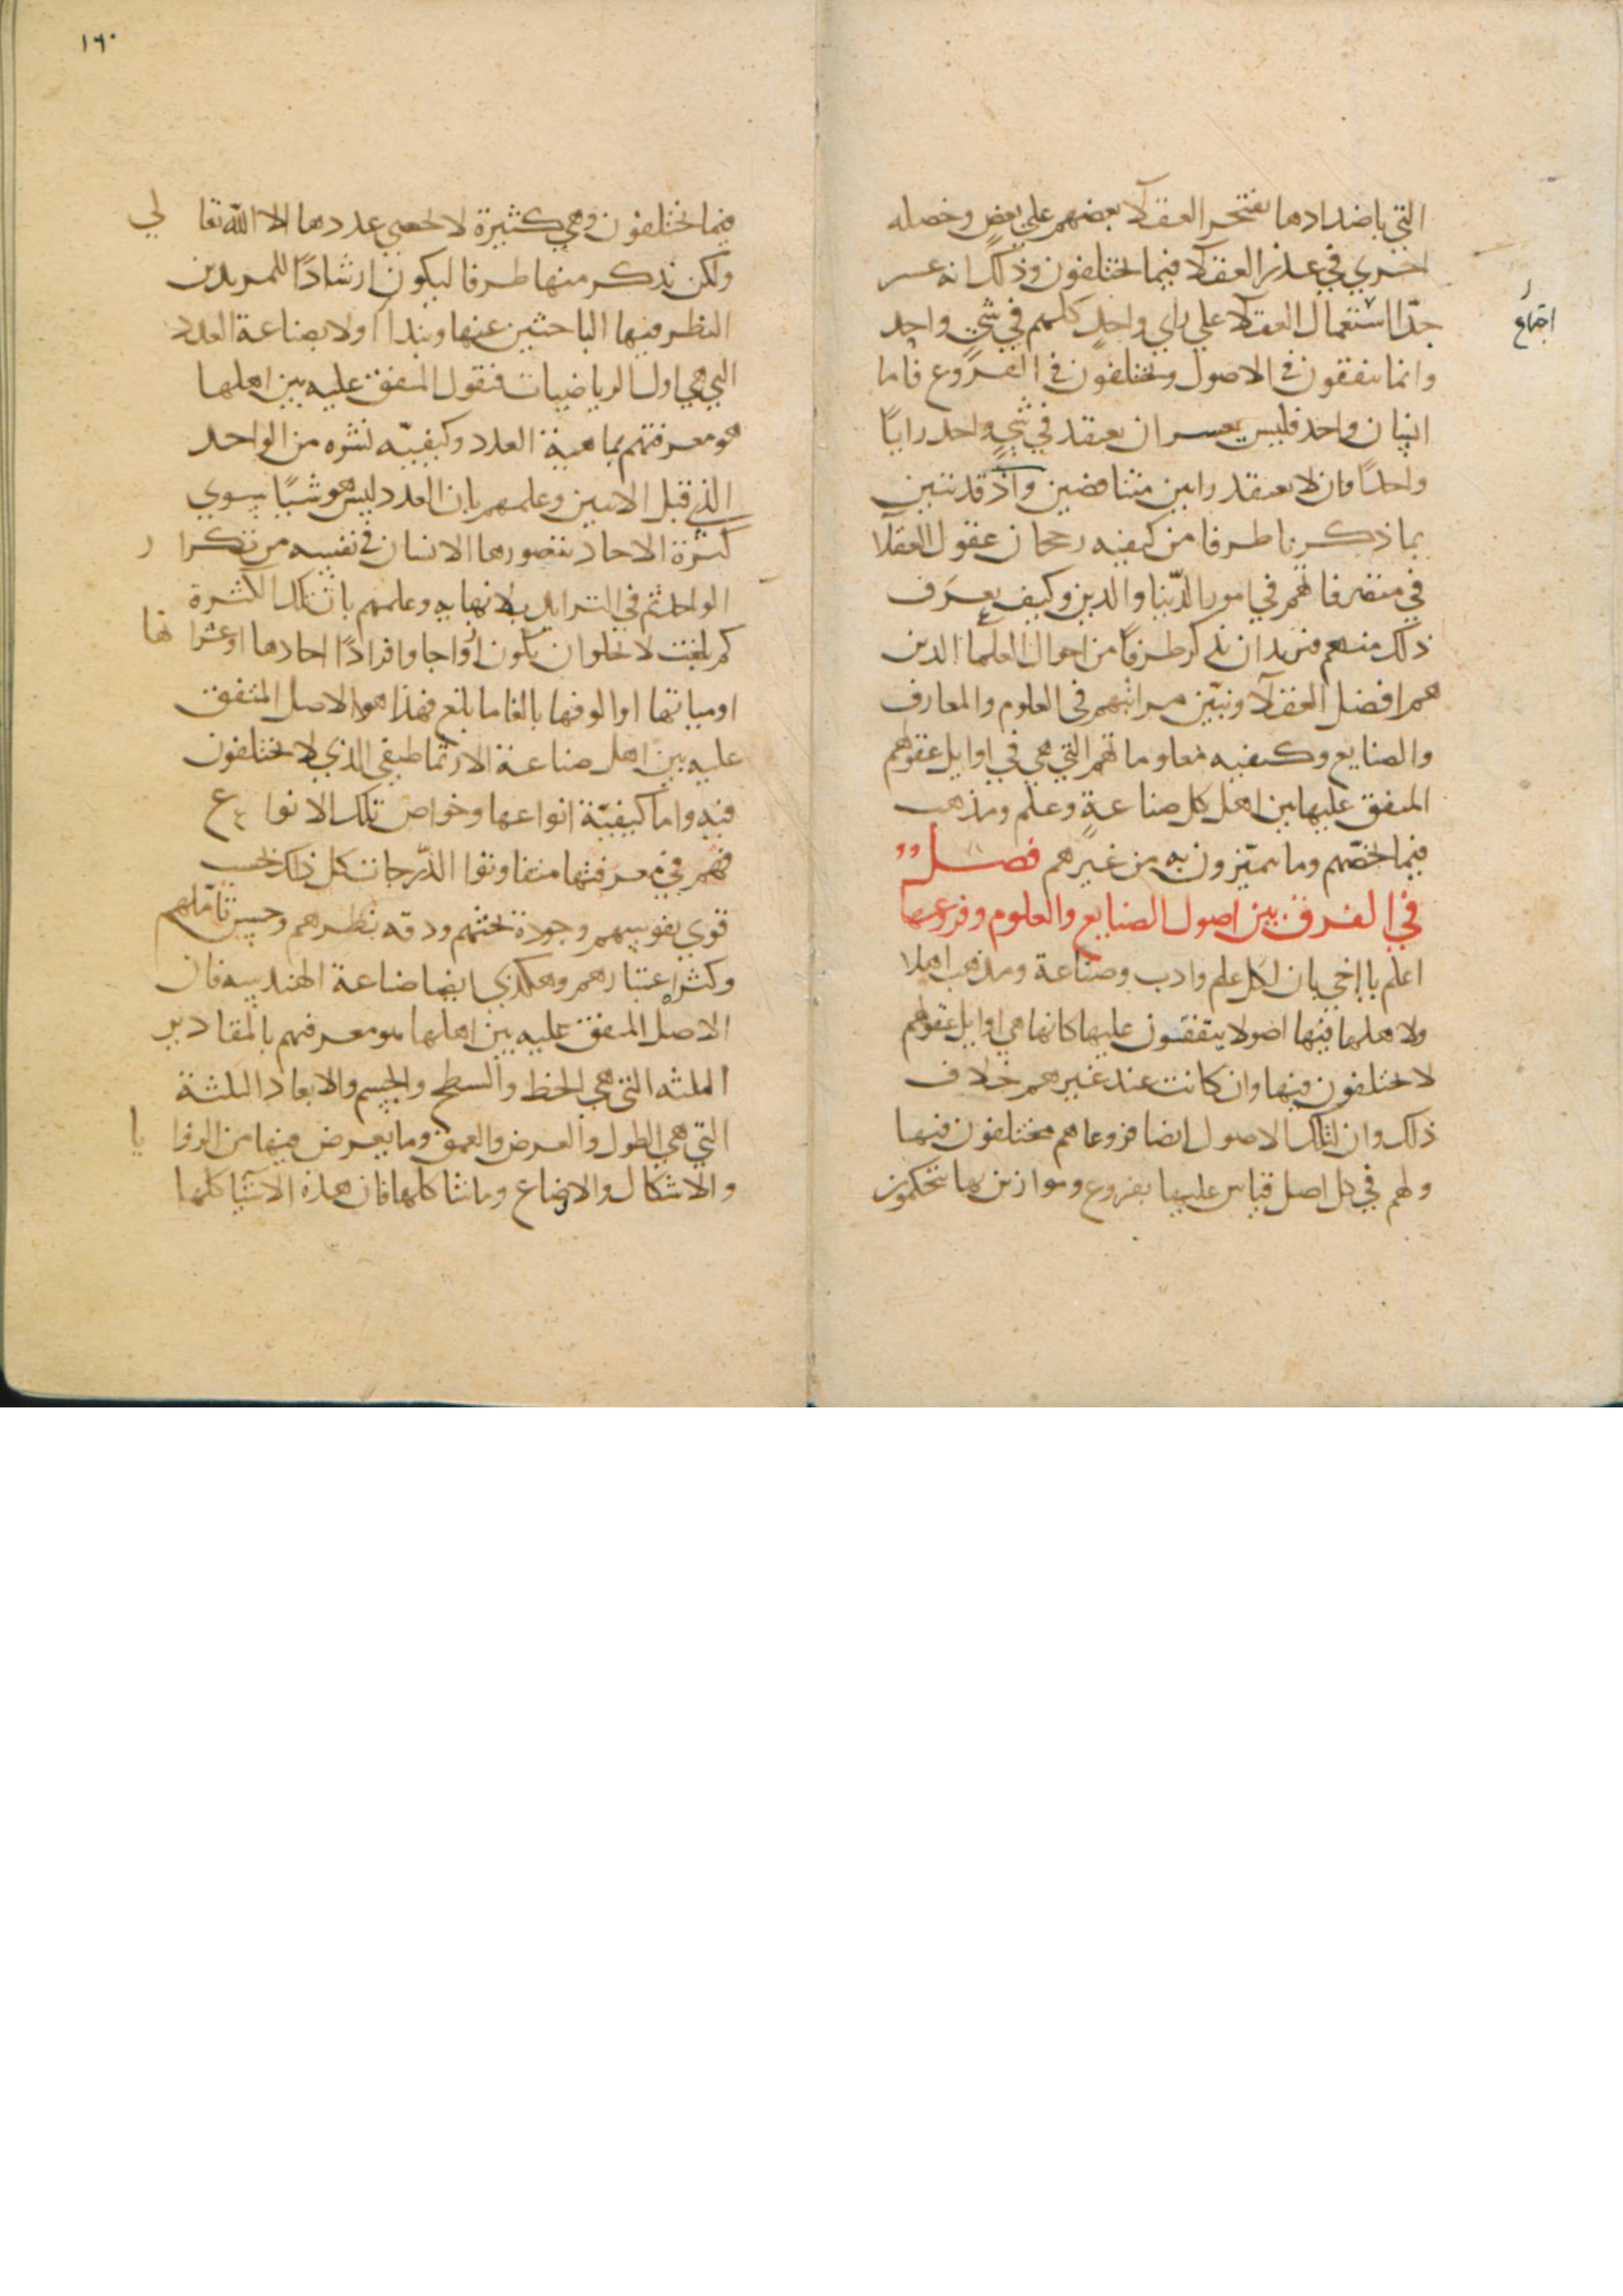 التي باضدادها يفتخر العقلآ بعضهم علي بعضٍ وخصله
اخري في عذر العقلآ فيما يختلفون وذلك انه عسر
جدّا استعمال العقلآ علي راي واحدٍ كلهم في شيٍ واحد
اجتماع
وانما يتفقون في الاصول ويختلفون في الفروع فاما
انسان واحد فليس يعسر ان يعتقد في شيٍ واحد رايًا
واحدًا وان لا يعتقد رايين متناقضين واذ قد تبين
بما ذكرنا طرفا من كيفيه رجحان عقول العقلا
في متصرفاتهم في امور الدّنيا والدين وكيف يعرف
ذلك منهم فنريد ان نذكر طرفًا من احوال العلما الذين
هم افضل العقلآ ونبيّن مراتبهم في العلوم والمعارف
والصنايع وكيفيه معلوماتهم التي هي في اوايل عقولهم
المتفق عليها بين اهل كل صناعةٍ وعلم ومذهب
فيما يخصّهم وما يميّزون به من غيرهم فصل
في الفرق بين اصول الصنايع والعلوم وفروعها
اعلم يا اخي بان لكل علم وادب وصناعة ومذهب اهلا
ولاهلها فيها اصولا يتفقون عليها كانها هي اوايل عقولهم
لا يختلفون فيها وان كانت عند غيرهم خلاف
ذلك وان لتلك الاصول ايضا فروعا هم مختلفون فيها
ولهم في كل اصل قياس عليها بفروع وموازين بها يتحكمون
١٦٠
فيما يختلفون وهي كثيرة لا يحصي عددها الا الله تعالي
ولكن نذكر منها طرفا ليكون ارشادًا للمريدين
النظر فيها الباحثين عنها ونبدا اولا بصناعة العدد
التي هي اول الرياضيات فنقول المتفق عليه بين اهلها
هو معرفتهم بماهية العدد وكيفيّه نشوه من الواحد
الذي قبل الاثنين وعلمهم بان العدد ليس هو شيًا سوي
كثرة الاحاد يتصورها الانسان في نفسه من تكرار
الواحد ثم في التزايد بلا نهايه وعلمهم بان تلك الكثرة
كم بلغت لا يخلو ان يكون ازواجا وافرادًا احادها او عشراتها
او مياتها او الوفها بالغا ما بلغ فهذا هو الاصل المتفق
عليه بين اهل صناعة الارثماطيقي الذي لا يختلفون
فيه واما كيفيّة انواعها وخواص تلك الانواع
فهم في معرفتها متفاوتوا الدّرجات كل ذلك بحسب
قوي نفوسهم وجودة بحثهم ودقه نظرهم وحسن تاملهم
وكثرة اعتبارهم وهكذي ايضا صناعة الهندسه فان
الاصل المتفق عليه بين اهلها هو معرفتهم بالمقادير
الثلثه التي هي الخط والسطح والجسم والابعاد الثلثة
التي هي الطول والعرض والعمق وما يعرض فيها من الزوايا
والاشكال والاوضاع وما شاكلها فان هذه الاشيا كلها